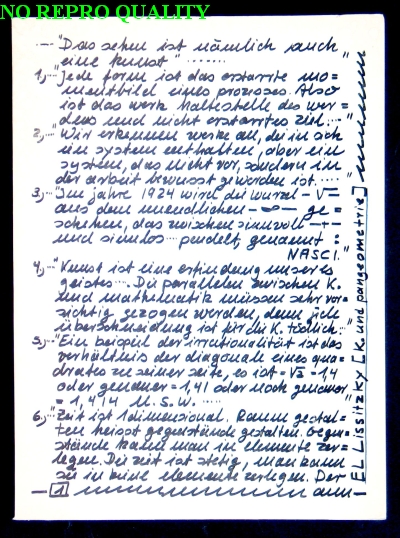 NO REPRO QUALITY
— "Das sehen ist nämlich auch
eine kunst" ........"
1,..."Jede form ist das erstarrte mo=
mentbild eines prozesses. Also
ist das werk haltestelle des wer=
dens und nicht erstarrtes ziel..."
2,..."Wir erkennen werke an, die in sich
ein system enthalten, aber ein
system, das nicht vor, sondern in
der arbeit bewusst geworden ist...."
3,..."Im jahre 1924 wird die wurzel -√=
aus dem unendlichen -∞- ge=
schehen, das zwischen sinnvoll -+-
und sinnlos ... pendelt, genannt :
NASCI."
4,..."Kunst ist eine erfindung unseres
geistes .... Die parallelen zwischen K.
und mathematik müssen sehr vor=
sichtig gezogen werden, denn jede
überschneidung ist für die K. tödlich..."
5,..."Ein beispiel der irrationalität ist das
verhältnis der diagonale eines qua=
drates zu seiner seite, es ist =√2 = 1,4
oder genauer = 1,41 oder noch genauer
= 1,414 u. s. w. ....."
6,..."Zeit ist 1 dimensional. Raum gestal=
ten heisst gegenstände gestalten. Gegen=
stände kann man in elemente zer=
legen. Die zeit ist stetig, man kann
sie in keine elemente zerlegen. Der
1 aum—
EL Lissitzky [K. und pangeometrie]